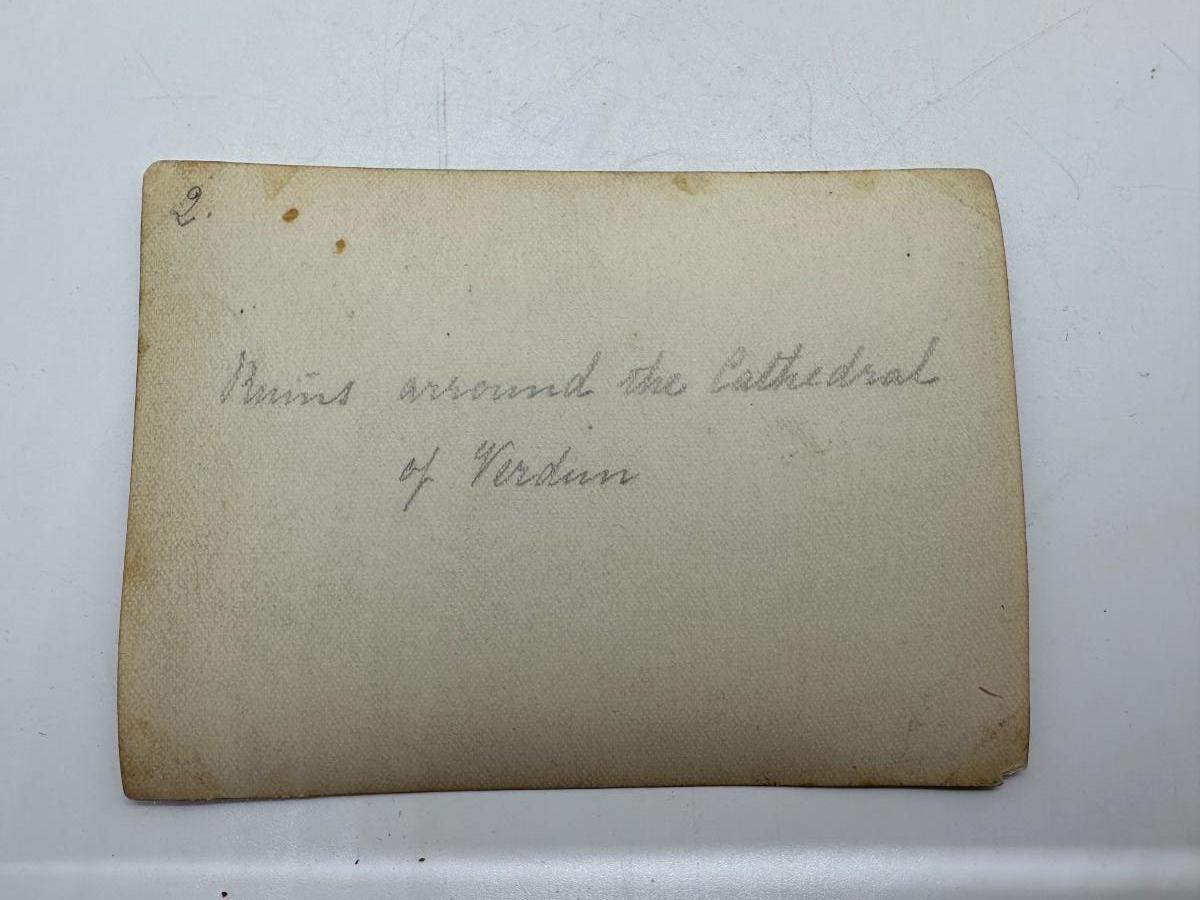 2.
Ruins arround the Cathedral
of Verdun